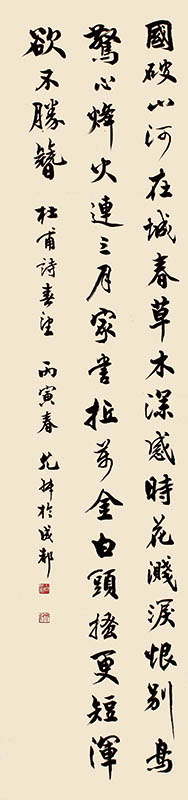 國破山河在城春草木深感時花濺淚恨別鳥
驚心烽火連三月家書抵萬金白頭搔更短渾
欲不勝簪 杜甫詩春望 丙寅春 於成都